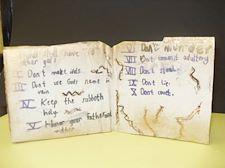 You shall have no
other gods
II Don't make idols.
III Don't use Gods name in
vain
IV Keep the sabboth
holy
V Honor your
VI Don't murder
VII Don't commit adultery
VIII Don't steal.
IX Don't lie.
X Don't covet.